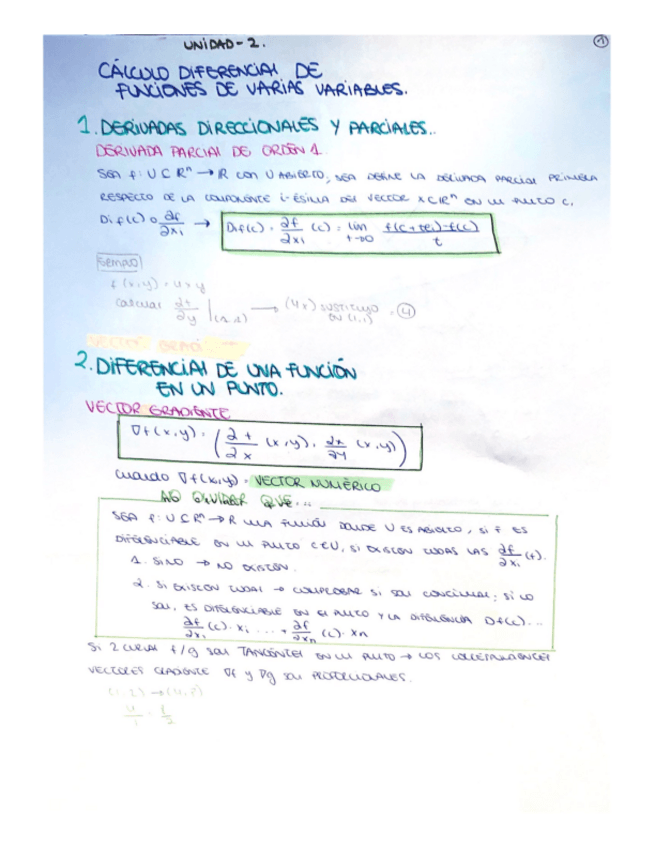 UNIDAD - 2.
①
CÁLCULO DIFERENCIAL DE
FUNCIONES DE VARIAS VARIABLES.
1. DERIVADAS DIRECCIONALES Y PARCIALES..
DERIVADA PARCIAL DE ORDEN 1.
SEA f: U ⊂ Rⁿ → R CON U ABIERTO, SEA DEFINE LA DERIVADA PARCIAL PRIMERA
RESPECTO DE LA COMPONENTE i-ÉSIMA DEL VECTOR X ⊂ Rⁿ EN UN PUNTO C,
Dif(c) o ∂f/∂xi → Dif(c) = ∂f/∂xi (c) = lím t→0 f(c+tei)-f(c) / t
EJEMPLO
f(x,y) = 4xy
CALCULAR ∂f/∂y |(1,1) → (4x) SUSTITUYO EN (1,1) = ④
VECTOR GRADI
2. DIFERENCIAL DE UNA FUNCIÓN
EN UN PUNTO.
VECTOR GRADIENTE
∇f(x,y) = (∂f/∂x (x,y), ∂x/∂y (x,y))
CUANDO ∇f(x,y) = VECTOR NUMÉRICO
NO OLVIDAR QUE...
SEA f: U ⊆ Rⁿ → R UNA FUNCIÓN DONDE U ES ABIERTO, SI F ES
DIFERENCIABLE EN UN PUNTO C ∈ U, SI EXISTEN TODAS LAS ∂f/∂xi (f).
1. SI NO → NO EXISTEN.
2. SI EXISTEN TODAS → COMPROBAR SI SON CONTINUAS; SI LO
SON, ES DIFERENCIABLE EN EL PUNTO Y LA DIFERENCIA Df(c)...
∂f/∂x₁ (c)·x₁ ... + ∂f/∂xn (c)·xn
SI 2 CURVAS f/g SON TANGENTES EN UN PUNTO → LOS CORRESPONDIENTES
VECTORES GRADIENTE ∇f y ∇g SON PROPORCIONALES.
(1,2) →